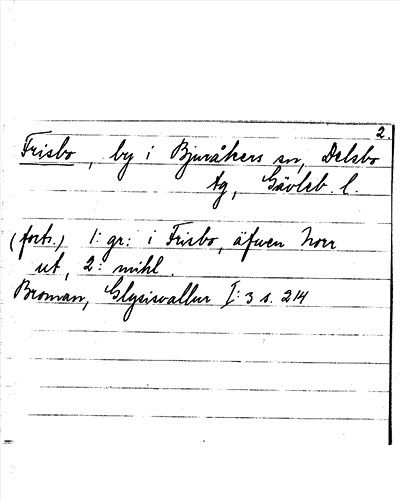 2.
Frisbo, by i Bjuråkers sn, Delsbo
tg, Gävleb. l.
(forts.) 1: gr: i Frisbo, äfwen Norr
ut, 2: mihl.
Broman, Glysisvallur I: 3 s. 214